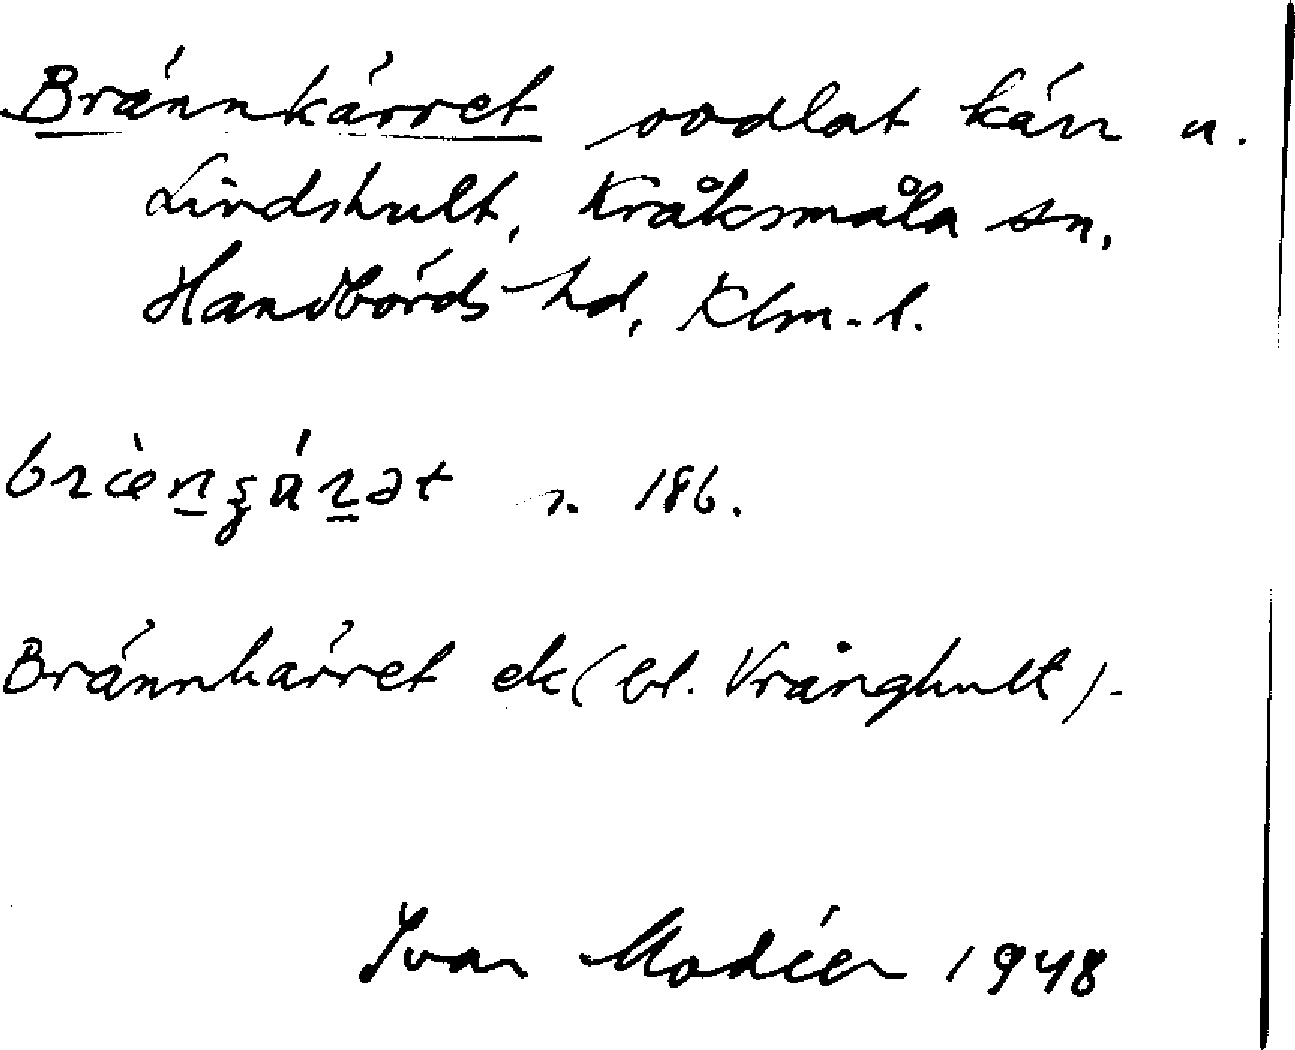 Brännkärret oodlat kärr u.
Lindshult, Kråksmåla sn,
Handbörds hd, Klm. l.
s. 186.
Brännkärret ek (bl. Vrånghult).
Ivar Modéer 1948